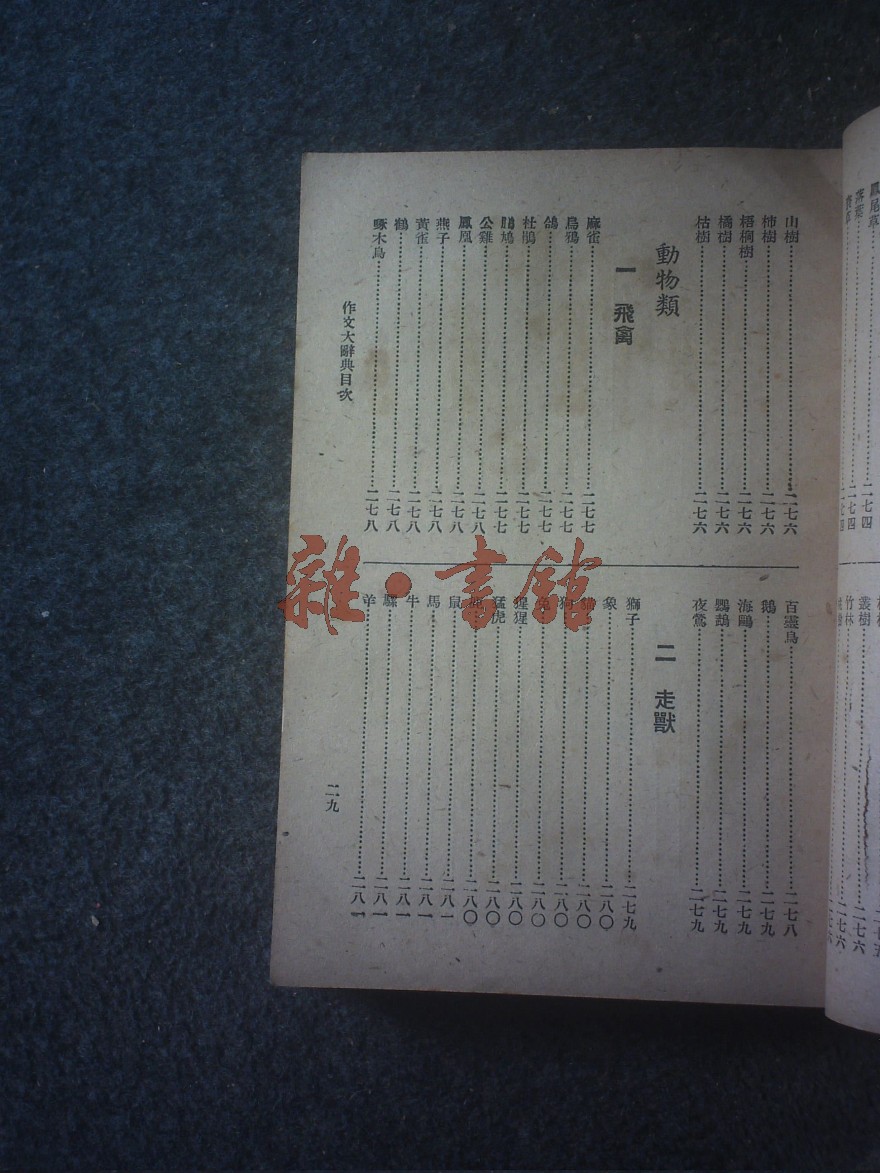 山樹……二七六
柿樹……二七六
梧桐樹……二七六
橘樹……二七六
枯樹……二七六
動物類
一 飛禽
麻雀……二七七
烏鴉……二七七
鴿……二七七
杜鵑……二七七
鵬鳩……二七七
公雞……二七八
鳳凰……二七八
燕子……二七八
黃雀……二七八
鶴……二七八
啄木鳥……二七八
作文大辭典目次
百靈鳥……二七八
鵝……二七九
海鷗……二七九
鸚鵡……二七九
夜鶯……二七九
二 走獸
獅子……二七九
象……二八〇
貓……二八〇
狗……二八〇
……二八〇
猩猩……二八〇
猛虎……二八〇
……二八〇
鼠……二八一
馬……二八一
牛……二八一
騾……二八一
羊……二八一
二九
雜·書館
鳳尾草
二七四
二七四
叢樹……二七六
竹林……二七六